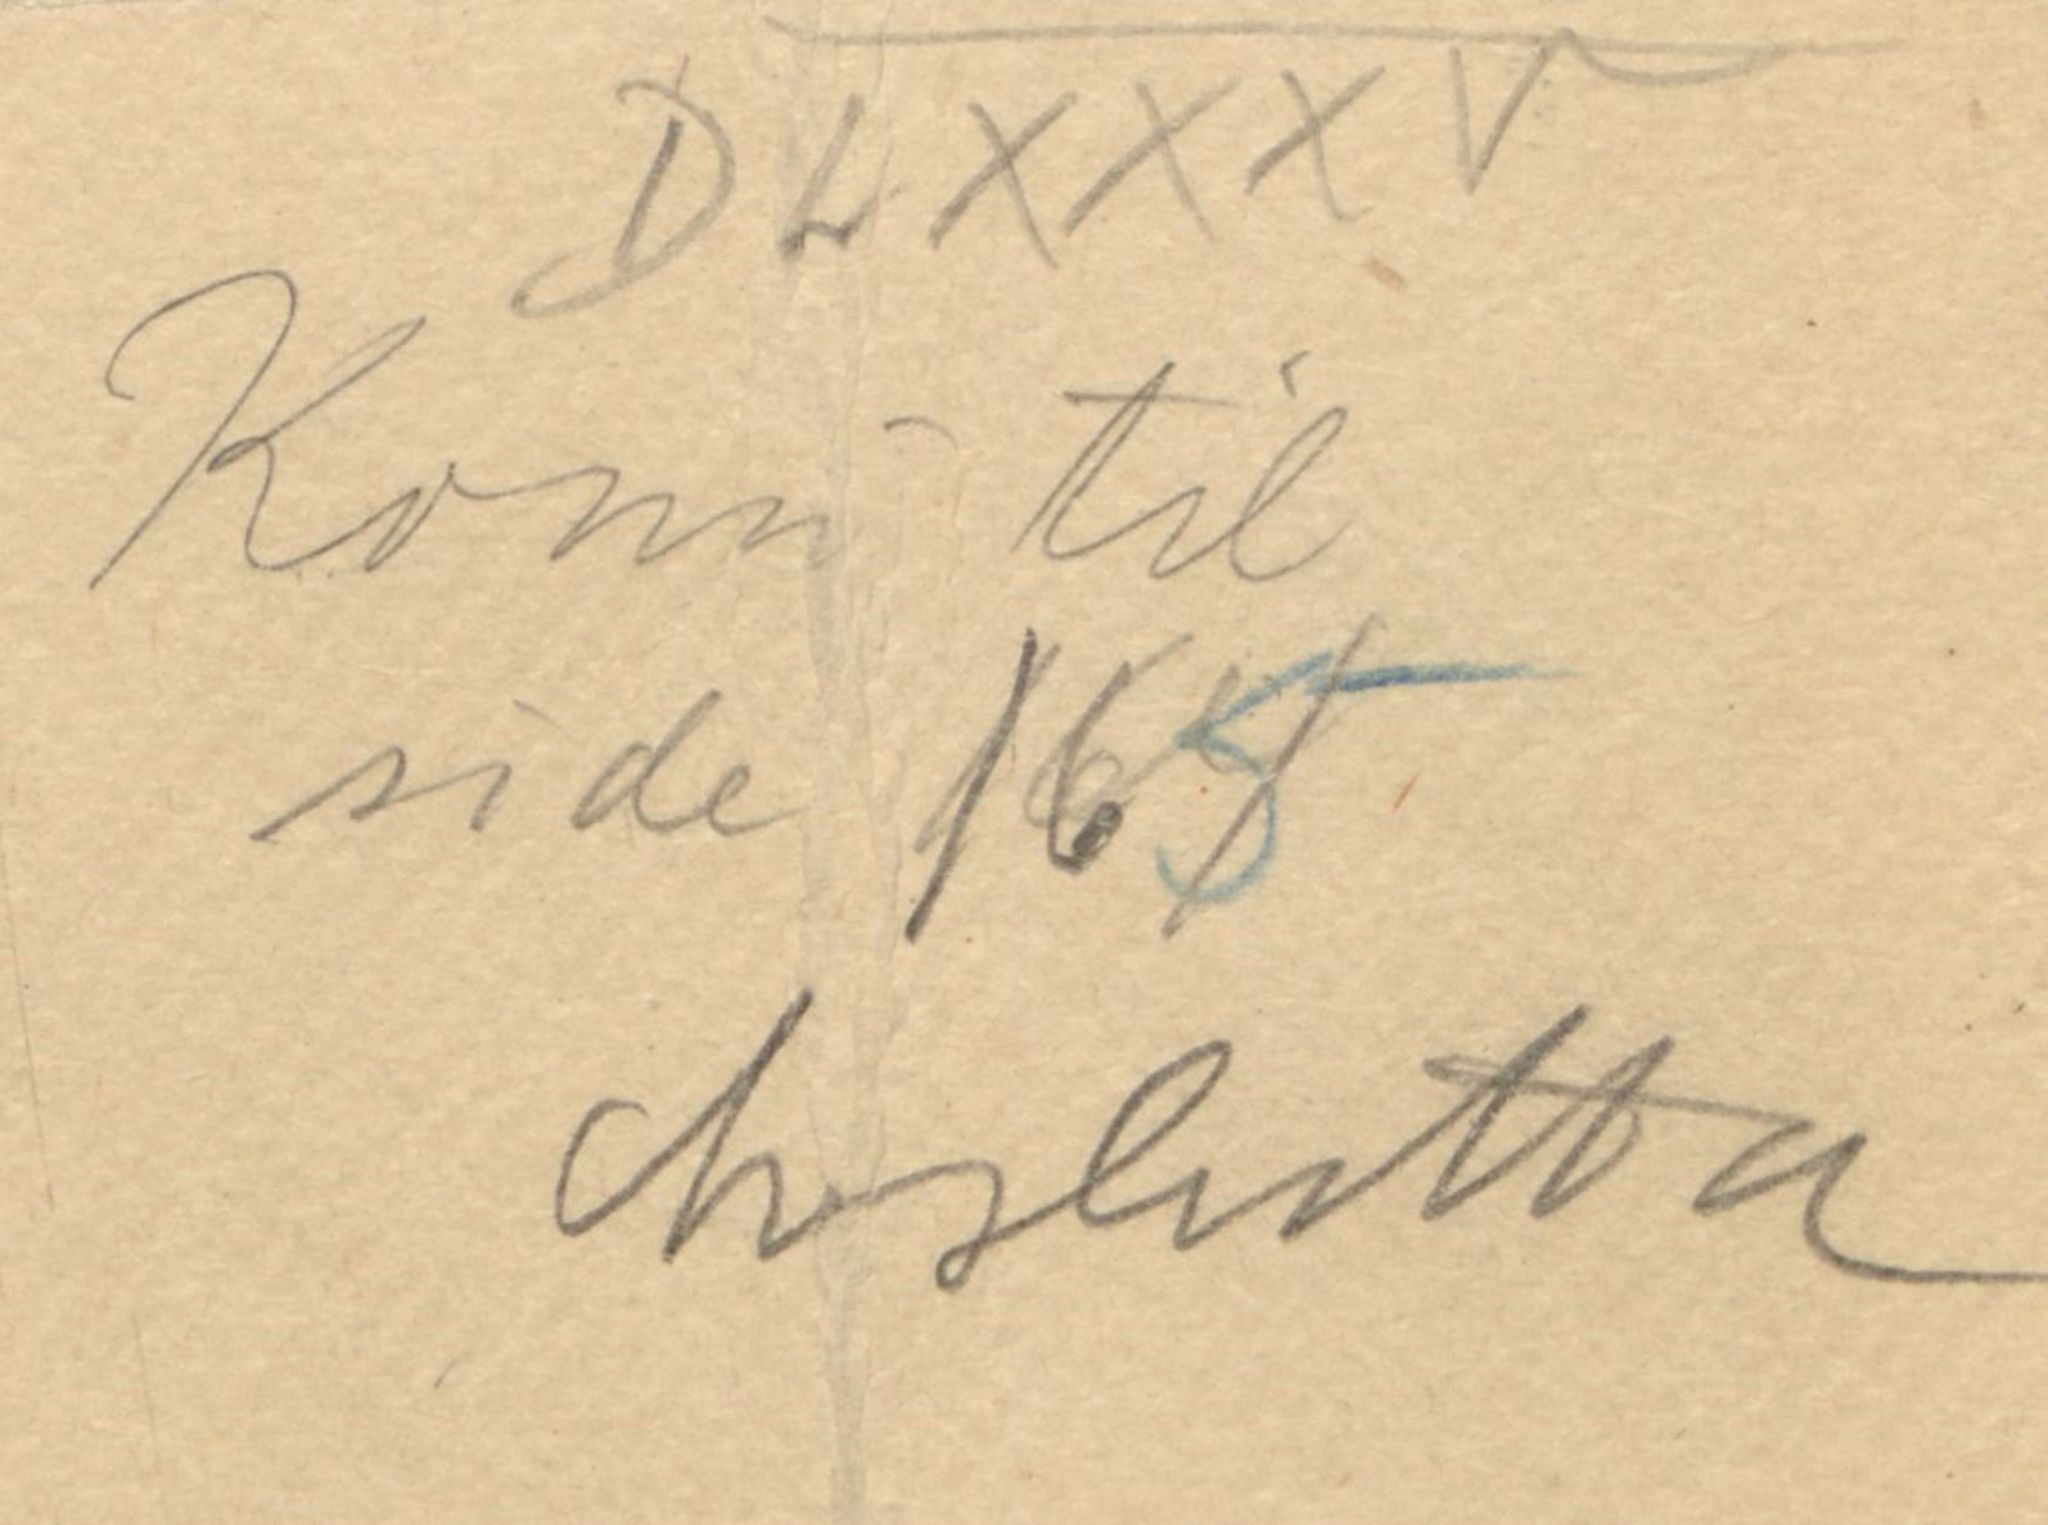 DLXXXV
Kom til
side 165